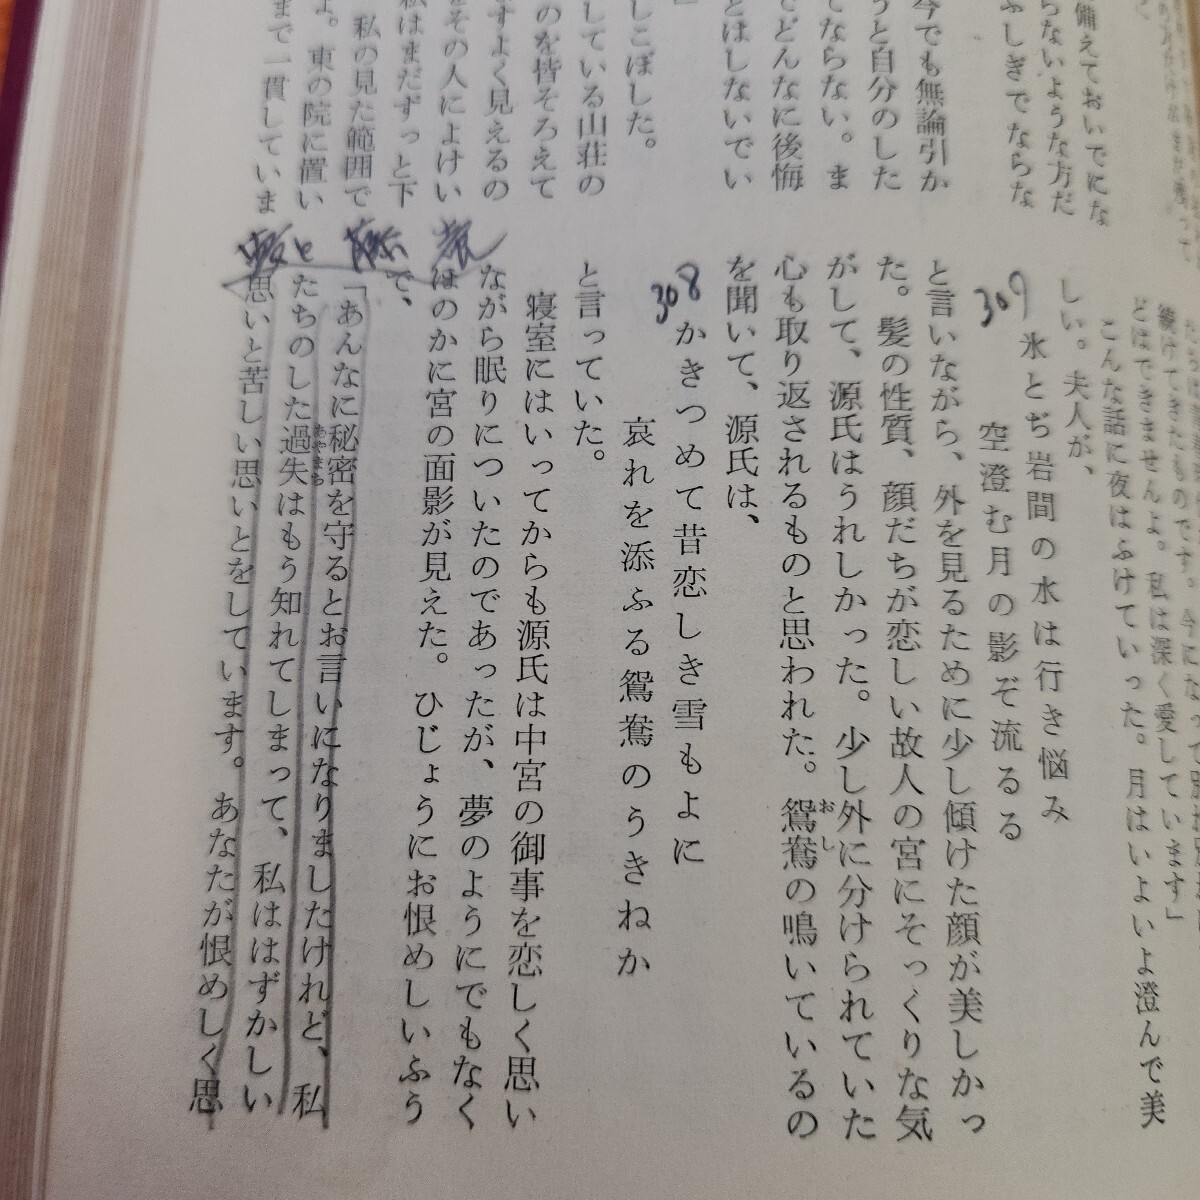 備えておいでにな
らないような方だ
ふしぎでならな
今でも無論引か
うと自分のした
てならない。ま
でどんなに後悔
とはしないでい
」
しこぼした。
している山荘の
のを皆そろえて
ますよく見えるの
をその人によけい
私はまだずっと下
私の見た範囲で
よ。東の院に置い
まで一貫していま
続けてきたものです。今になって
とはできませんよ。私は深く愛しています」
こんな話に夜はふけていった。月はいよいよ澄んで美
しい。夫人が、
307
氷とぢ岩間の水は行き悩み
空澄む月の影ぞ流るる
と言いながら、外を見るために少し傾けた顔が美しかっ
た。髪の性質、顔だちが恋しい故人の宮にそっくりな気
がして、源氏はうれしかった。少し外に分けられていた
心も取り返されるものと思われた。鴛鴦の鳴いているの
おし
を聞いて、源氏は、
308
かきつめて昔恋しき雪もよに
哀れを添ふる鴛鴦のうきねか
と言っていた。
寝室にはいってからも源氏は中宮の御事を恋しく思い
ながら眠りについたのであったが、夢のようにでもなく
ほのかに宮の面影が見えた。ひじょうにお恨めしいふう
で、
「あんなに秘密を守るとお言いになりましたけれど、私
たちのした過失はもう知れてしまって、私ははずかしい
あやまち
思いと苦しい思いとをしています。あなたが恨めしく思